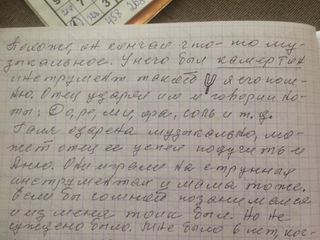 Похоже, он кончал что-то му-
зыкальное. У него был камертон
инструмент такой я его пом-
ню. Отец ударял им и говорил но-
ты: До, ре, ми, фа, соль и т.д.
Галя одарена музыкально, мо-
жет отец её успел подучить и
Аню. Они играли на струнных
инструментах и мама тоже.
Если бы со мной позанимался
и из меня толк был. Но не
суждено было. Мне было 6 лет, ког-